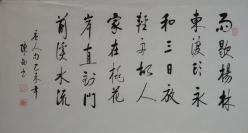 雨歇楊林
東渡頭永
和三日放
輕舟故人
家在桃花
岸直到門
前溪水流
唐人句